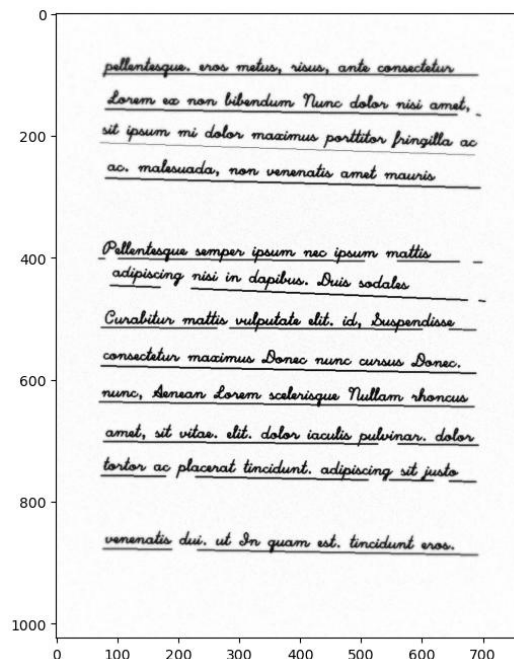 pellentesque. eros metus, risus, ante consectetur
Lorem ex non bibendum Nunc dolor nisi amet,
sit ipsum mi dolor maximus porttitor fringilla ac
ac. malesuada, non venenatis amet mauris
Pellentesque semper ipsum nec ipsum mattis
adipiscing nisi in dapibus. Duis sodales
Curabitur mattis vulputate elit. id, Suspendisse
consectetur maximus Donec nunc cursus Donec.
nunc, Aenean Lorem scelerisque Nullam rhoncus
amet, sit vitae. elit. dolor iaculis pulvinar. dolor
tortor ac placerat tincidunt. adipiscing sit justo
venenatis dui. ut In quam est. tincidunt eros.
0
200
400
600
800
1000
0 100 200 300 400 500 600 700